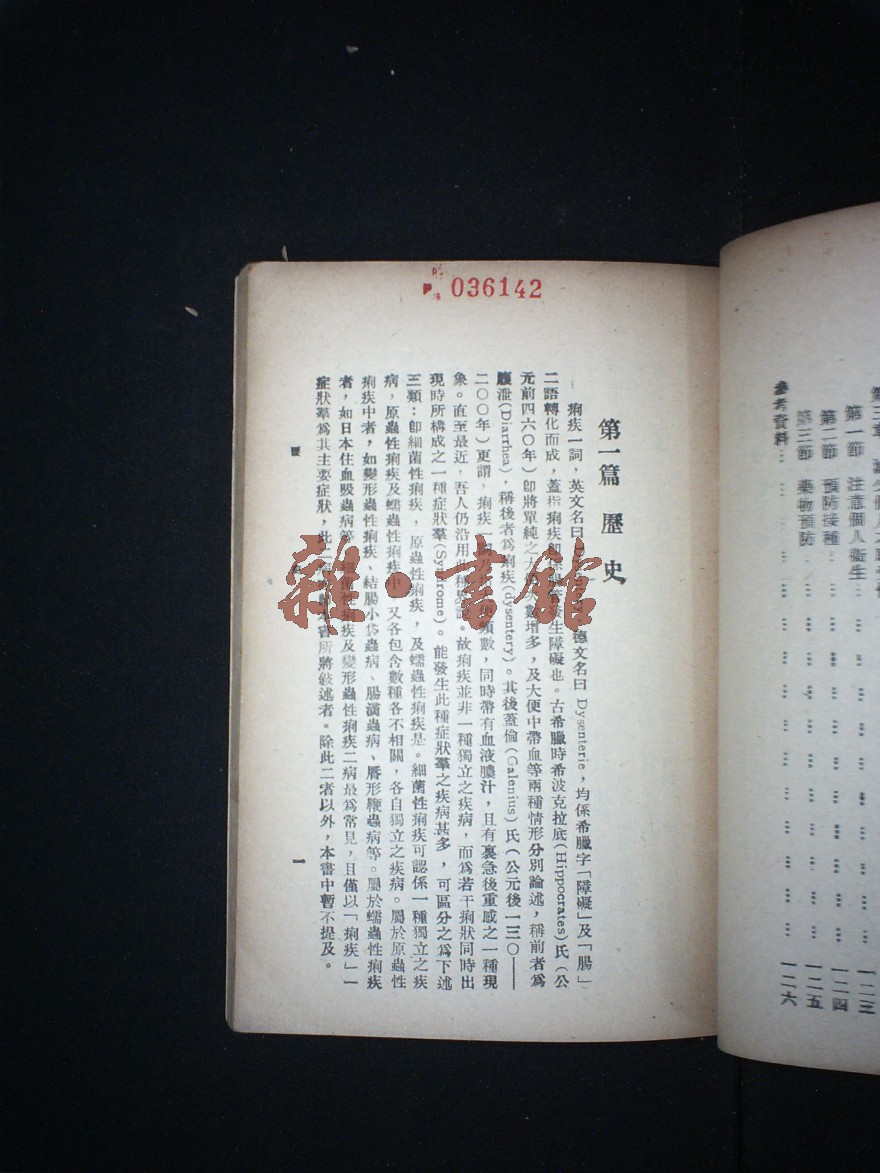 036142
第三節 藥物預防 ⋯ ⋯ ⋯ ⋯ ⋯ ⋯ ⋯ ⋯ 一二五
第一節 注意個人衞生 ⋯ ⋯ ⋯ ⋯ ⋯ ⋯ ⋯ 一二三
第二節 預防接種 ⋯ ⋯ ⋯ ⋯ ⋯ ⋯ ⋯ ⋯ 一二四
參考資料 ⋯ ⋯ ⋯ ⋯ ⋯ ⋯ ⋯ ⋯ 一二六
第一篇 歷史
痢疾一詞,英文名曰 德文名曰 Dysenterie,均係希臘字「障礙」及「腸」
二語轉化而成,蓋指痢疾卽係腸管發生障礙也。古希臘時希波克拉底(Hippocrates)氏(公
元前四六〇年)卽將單純之大便次數增多,及大便中帶血等兩種情形分別論述,稱前者爲
腹泄(Diarrhea),稱後者爲痢疾(dysentery)。其後蓋倫(Galenius)氏(公元後一三〇——
二〇〇年)更謂,痢疾一詞乃指 頻數,同時帶有血液膿汁,且有裏急後重感之一種現
象。直至最近,吾人仍沿用此種 故痢疾並非一種獨立之疾病,而爲若干病狀同時出
現時所構成之一種症狀羣(Syndrome)。能發生此種症狀羣之疾病甚多,可區分之爲下述
三類:卽細菌性痢疾,原蟲性痢疾,及蠕蟲性痢疾是。細菌性痢疾可認係一種獨立之疾
病,原蟲性痢疾及蠕蟲性痢疾中,又各包含數種各不相關,各自獨立之疾病。屬於原蟲性
痢疾中者,如變形蟲性痢疾、結腸小袋蟲病、腸滴蟲病、唇形鞭蟲病等。屬於蠕蟲性痢疾
者,如日本住血吸蟲病等。細菌性痢疾及變形蟲性痢疾二病最爲常見,且僅以「痢疾」一
症狀羣爲其主要症狀,此二 書所將敍述者。除此二者以外,本書中暫不提及。
歷
一
雜·書館